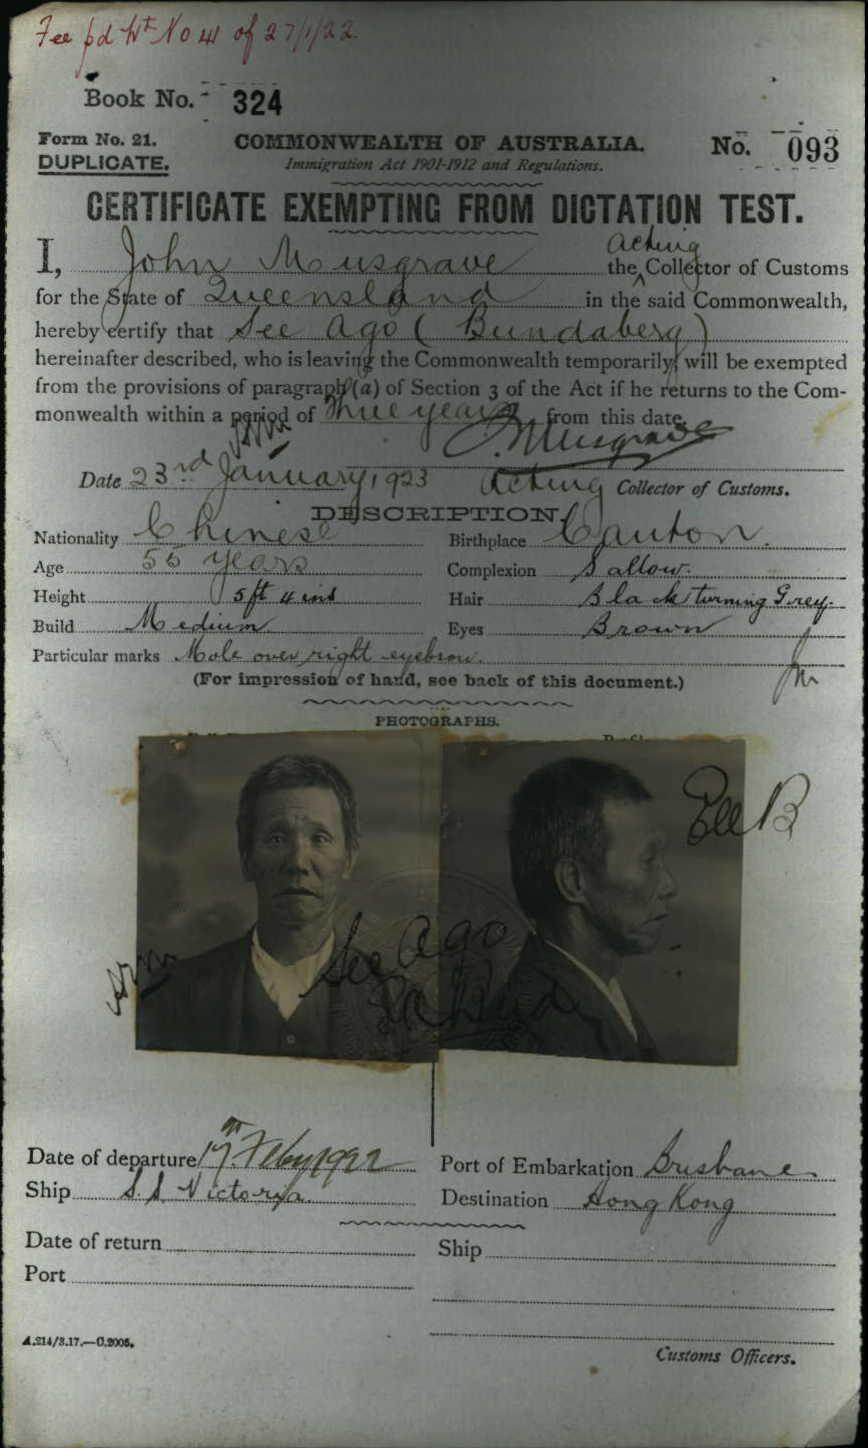 Fee pd Wt No 41 of 27/1/22.
Book No. 324
Form No. 21. COMMONWEALTH OF AUSTRALIA. No. 093
DUPLICATE. Immigration Act 1901-1912 and Regulations.
CERTIFICATE EXEMPTING FROM DICTATION TEST.
I, John Musgrave the Acting Collector of Customs
for the State of Queensland in the said Commonwealth,
hereby certify that See Ago (Bundaberg)
hereinafter described, who is leaving the Commonwealth temporarily, will be exempted
from the provisions of paragraph (a) of Section 3 of the Act if he returns to the Com-
monwealth within a period of Three years from this date.
J. Musgrave
Date 23rd January 1923 Acting Collector of Customs.
DESCRIPTION.
Nationality Chinese Birthplace Canton.
Age 55 years Complexion Sallow.
Height 5ft 4 ins Hair Black turning Grey.
Build Medium Eyes Brown
Particular marks Mole over right eyebrow.
(For impression of hand, see back of this document.)
PHOTOGRAPHS.
See Ago
Date of departure 17th Feby 1922 Port of Embarkation Brisbane
Ship S.S. Victoria. Destination Hong Kong
Date of return Ship
Port
A.214/3.17.—C.2005.
Customs Officers.